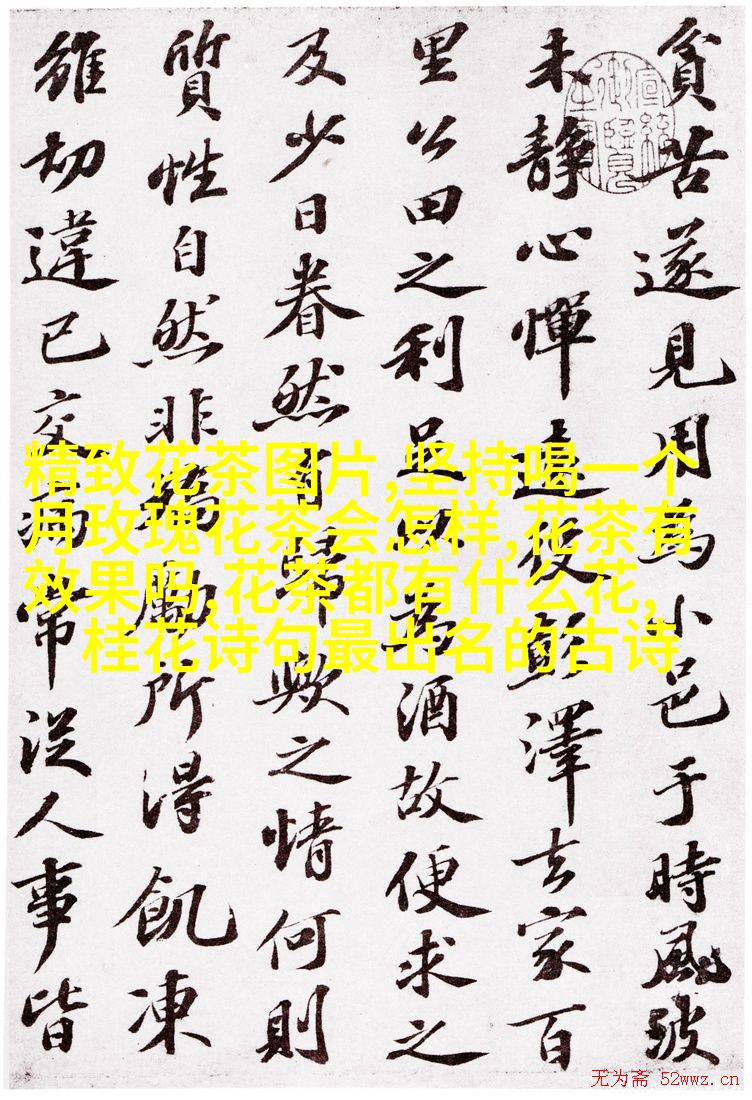 貧苦遂見用為小邑于時風波
未靜心憚遠役彭澤去家百
里公田之利足以為酒故便求之
及少日眷然有歸歟之情何則
質性自然非矯勵所得飢凍
雖切違已交病常從人事皆
精致花茶图片,坚持喝一个
月玫瑰花茶会怎样,花茶有
效果吗,花茶都有什么花,
桂花诗句最出名的古诗
无为斋 52wwz.cn